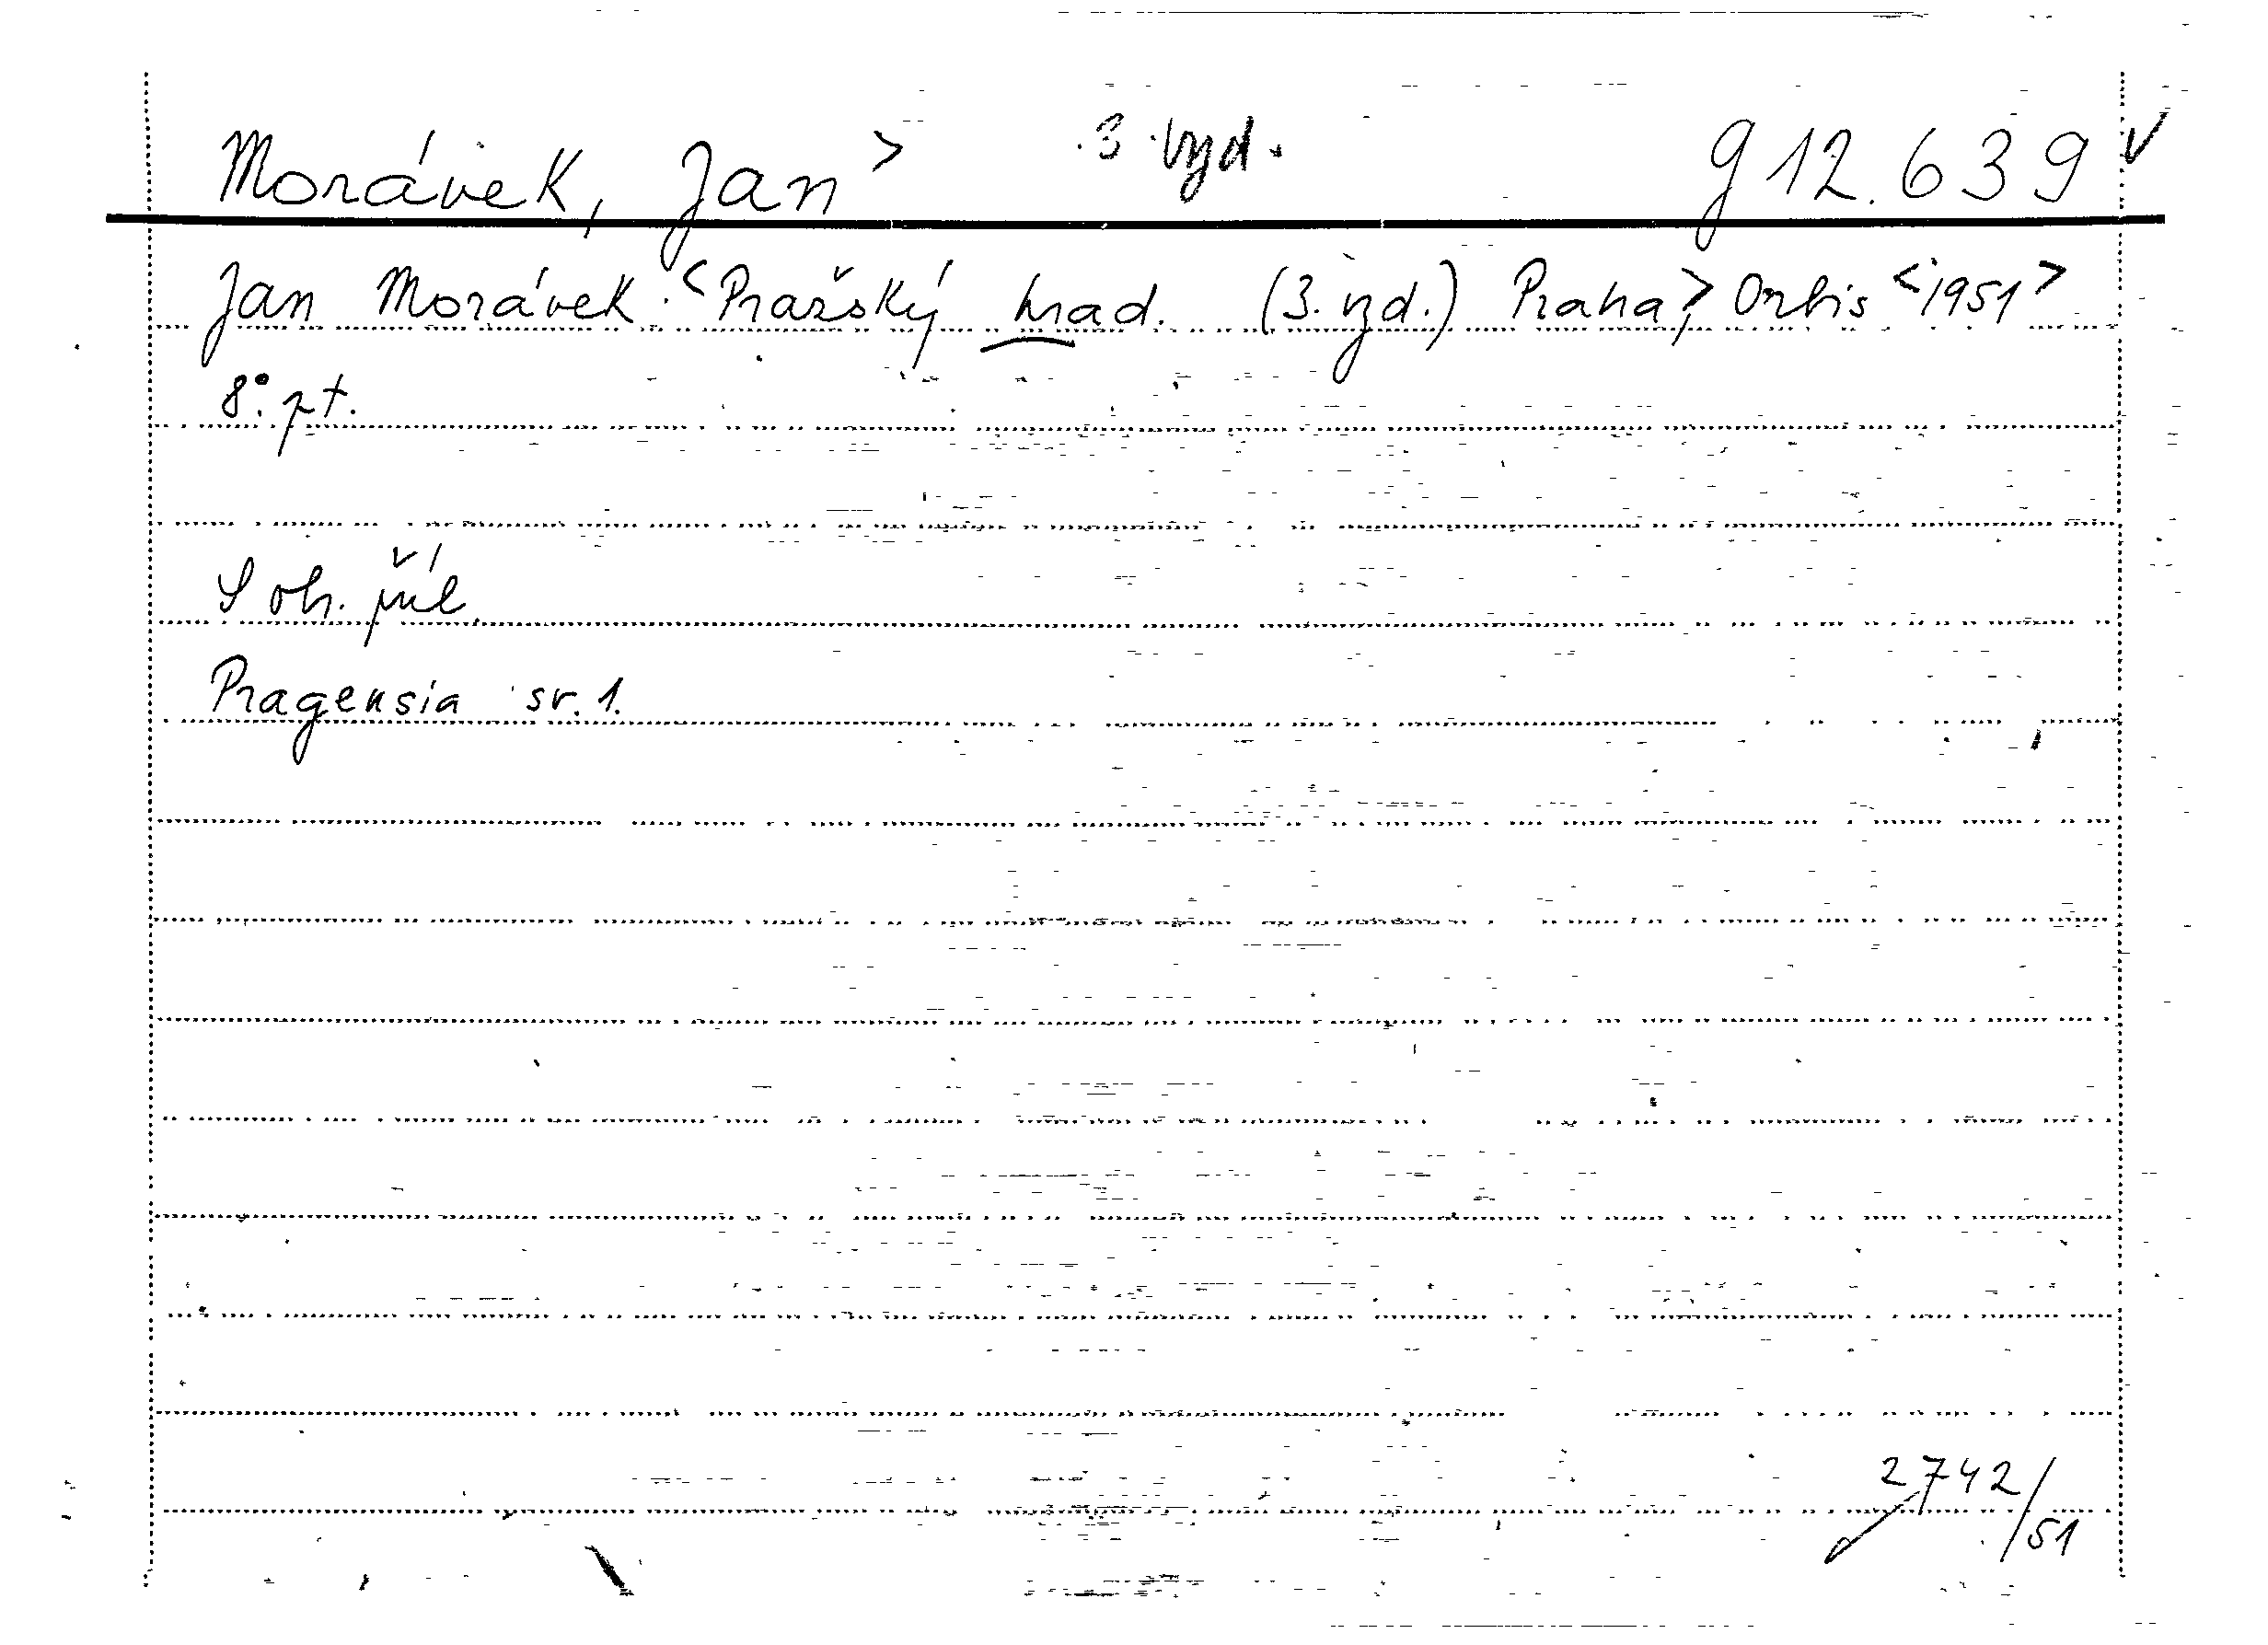 Morávek, Jan > 3 vyd. g 12.639 v
Jan Morávek: <Pražský hrad. (3. vyd.) Praha,> Orbis <1951>
8°. pt.
S ob. příl.
Pragensia sv. 1.
2742/51